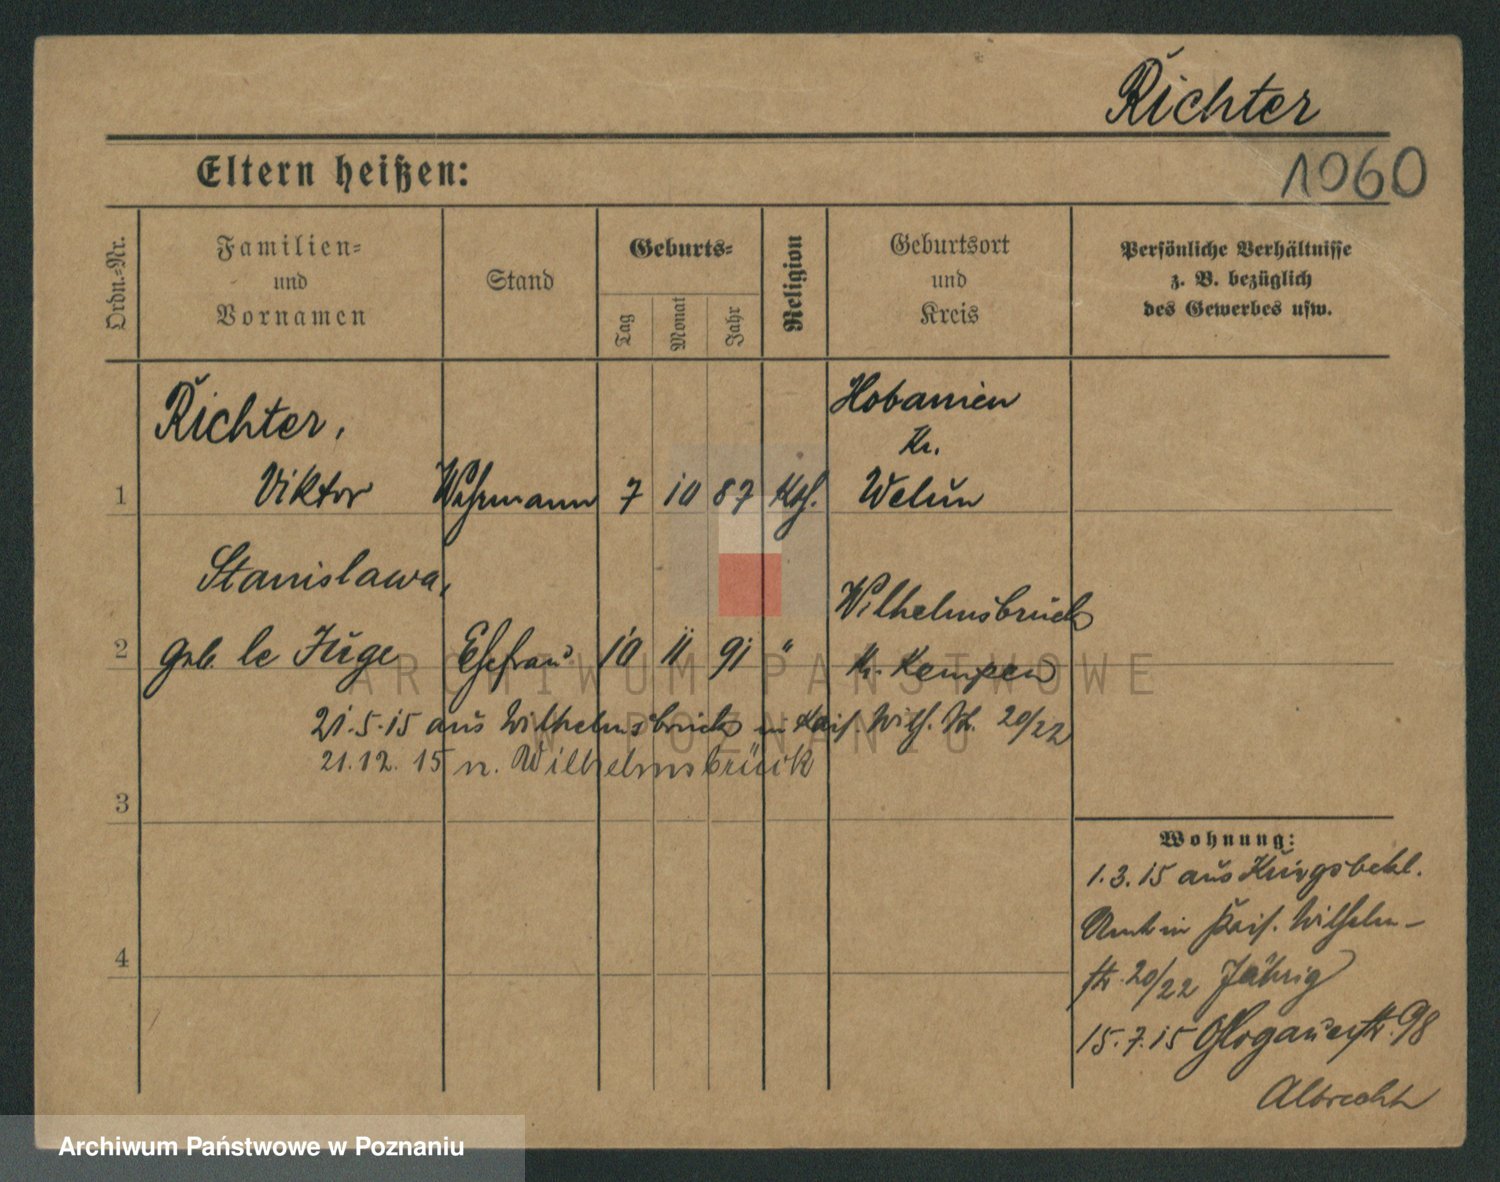 Richter
1060
Eltern heißen:
Ordn.=Nr.
Familien=
und
Vornamen
Stand
Geburts=
Tag
Monat
Jahr
Religion
Geburtsort
und
Kreis
Persönliche Verhältnisse
z. B. bezüglich
des Gewerbes usw.
Richter,
Hobanien
Kr.
1 Viktor Wehrmann 7 10 87 Kth. Welun
Stanislawa,
Wilhelmsbrück
2 geb. le Juge Ehefrau 10 11 91 " Kr. Kempen
21.5.15 aus Wilhelmsbrück in Kais. Wilh. Str. 20/22
21.12.15 n. Wilhelmsbrück
3
Wohnung:
1.3.15 aus
Amt in Kais. Wilhelm-
4
str. 20/22 Jährig
15.7.15 Glogauerstr. 98
Albrecht
ARCHIWUM PAŃSTWOWE
W POZNANIU
Archiwum Państwowe w Poznaniu